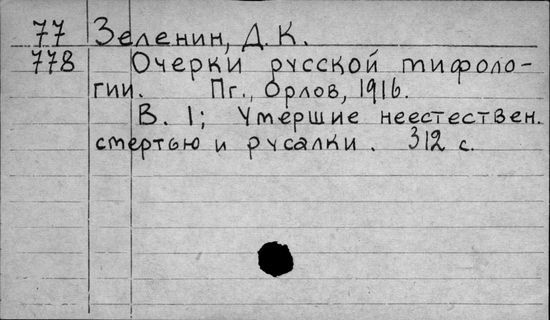 77 Зеленин, Д. К.
778 Очерки русской мифоло-
гии. Пг., Орлов, 1916.
В. 1; Умершие неестествен.
смертью и русалки. 312 с.